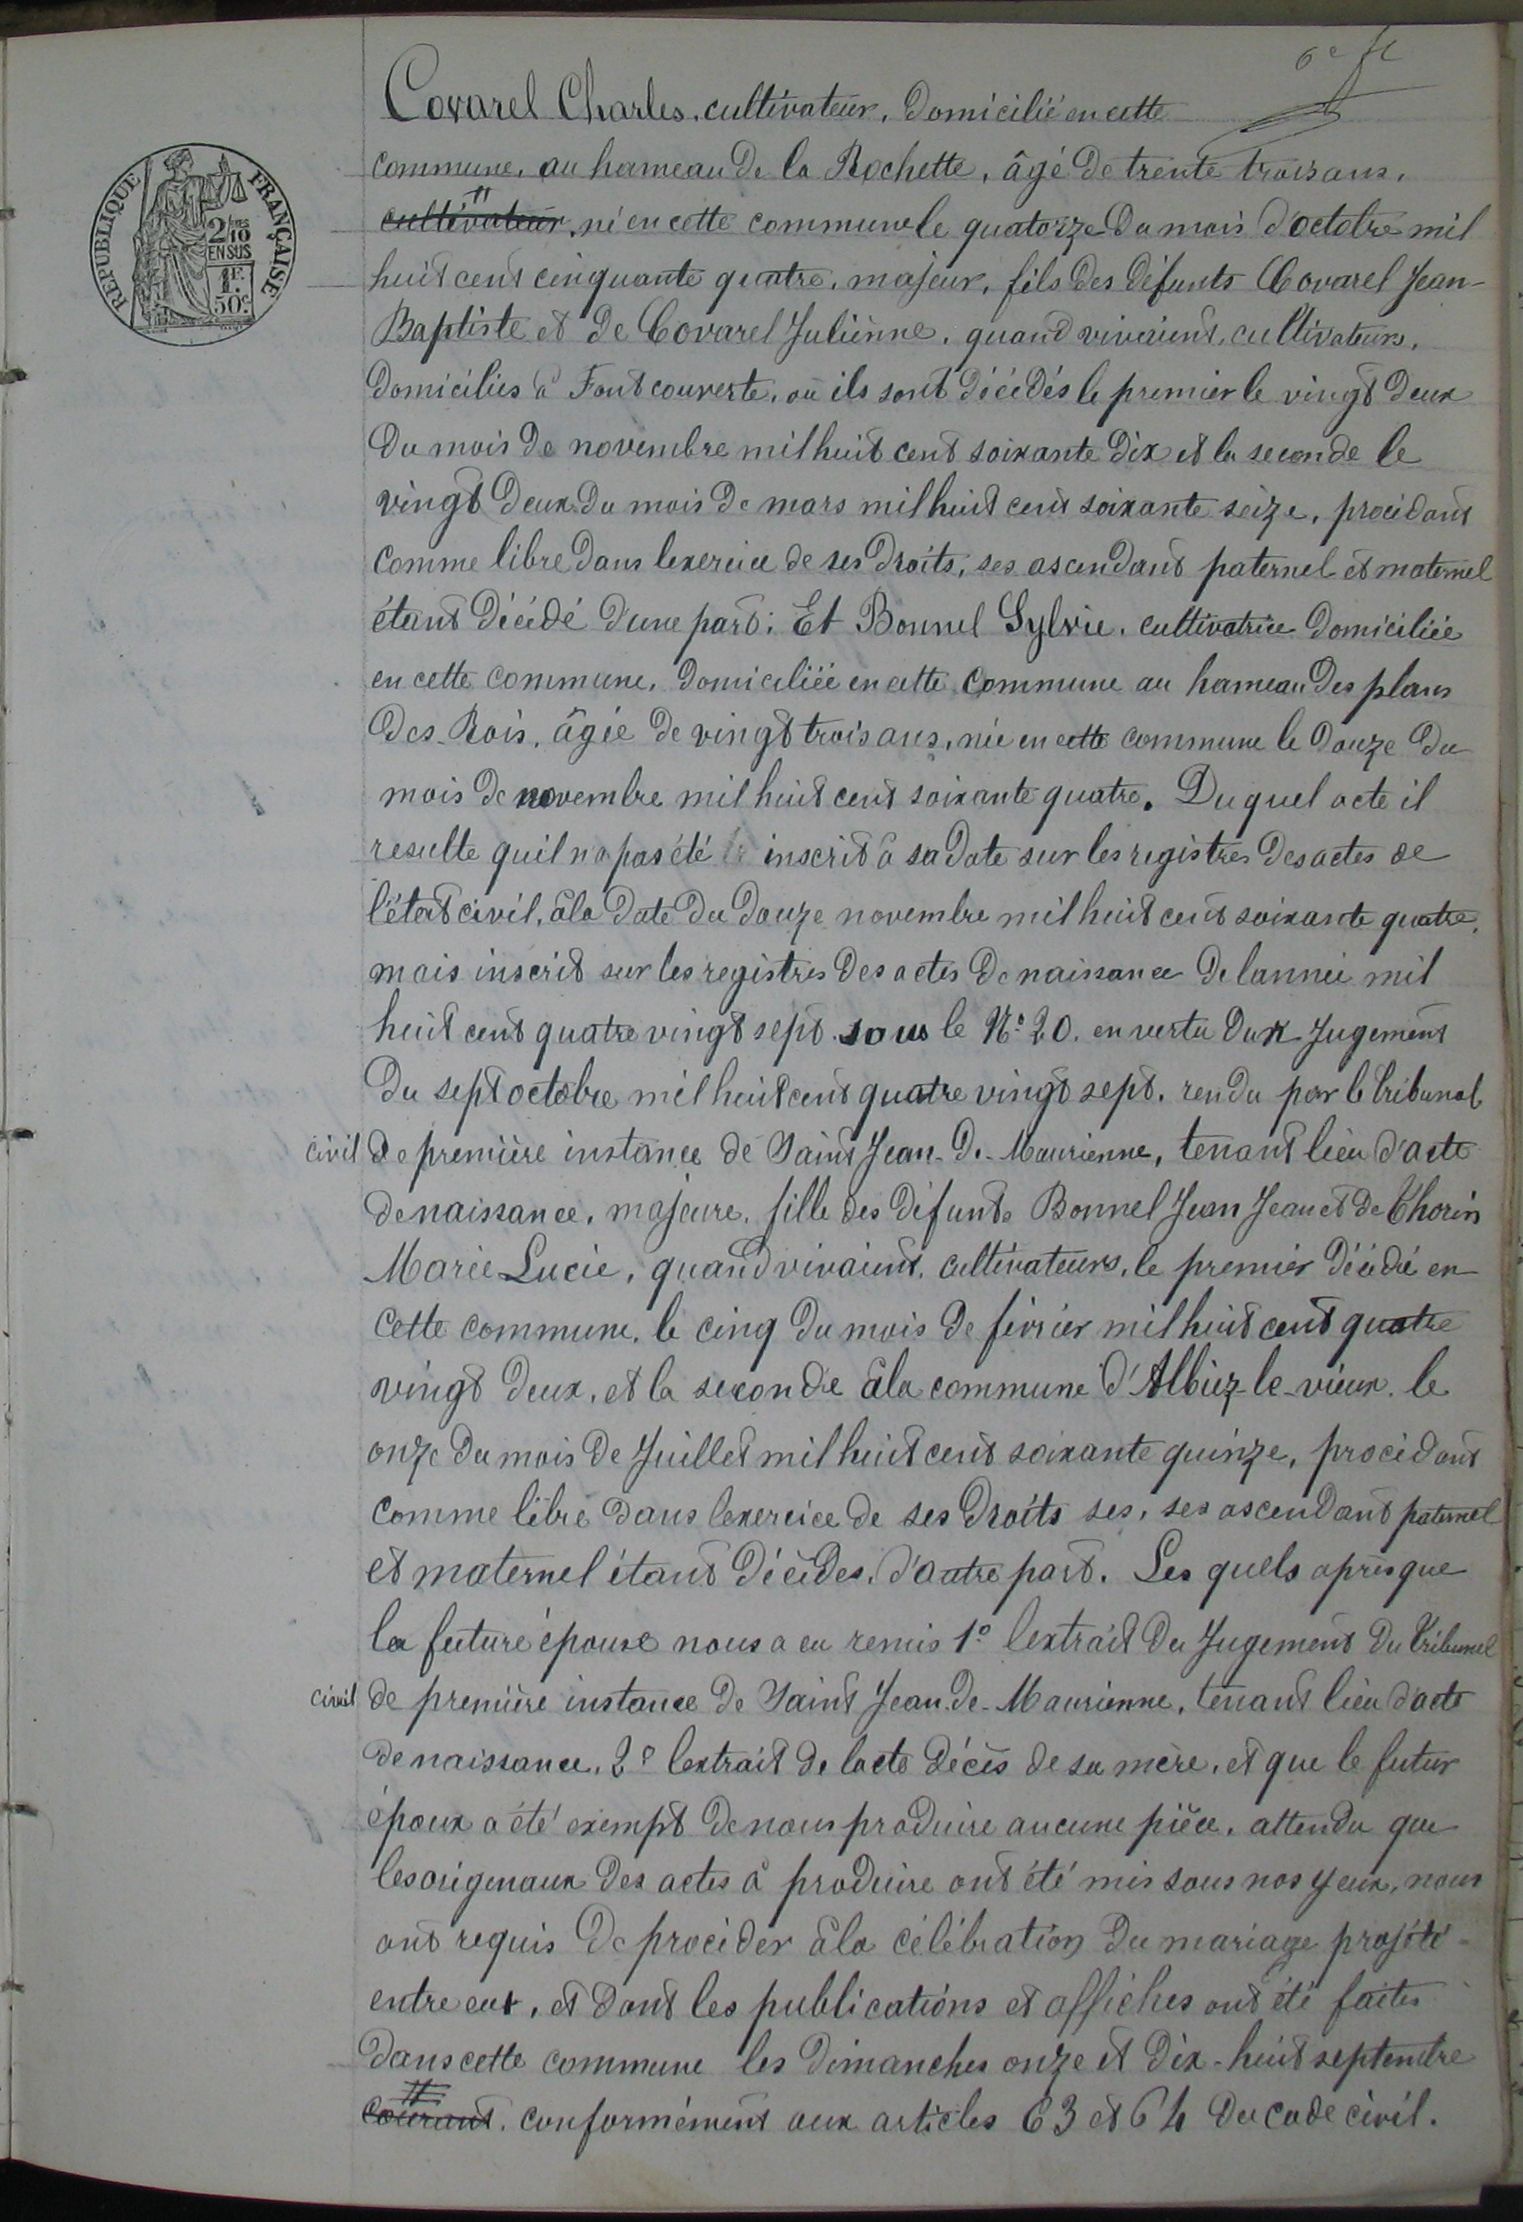 6e ft
RÉPUBLIQUE FRANÇAISE
2/10
EN SUS
1F.
50c
Covarel Charles, cultivateur, domicilié en cette
commune, au hameau de la Rochette, âgé de trente trois ans,
cultivateur, né en cette commune le quatorze du mois d'octobre mil
huit cent cinquante quatre, majeur, fils des défunts Covarel Jean-
Baptiste et de Covarel Julienne, quand vivaient, cultivateurs,
domiciliés à Fontcouverte, où ils sont décédés le premier le vingt deux
du mois de novembre mil huit cent soixante dix et la seconde le
vingt deux du mois de mars mil huit cent soixante seize, procédant
comme libre dans lexercice de ses droits, ses ascendant paternel et maternel
étant décédé d'une part; Et Bonnel Sylvie, cultivatrice domiciliée
en cette commune, domiciliée en cette commune au hameau des plans
des Rois, âgée de vingt trois ans, née en cette commune le douze du
mois de novembre mil huit cent soixante quatre. Du quel acte il
resulte quil na pas été inscrit à sa date sur les registres des actes de
l'état civil, à la date du douze novembre mil huit cent soixante quatre,
mais inscrit sur les registres des actes de naissance de lannée mil
huit cent quatre vingt sept sous le No 20. en vertu dux Jugement
du sept octobre mil huit cent quatre vingt sept, rendu par le tribunal
civil de première instance de Saint Jean-de-Maurienne, tenant lieu d'acte
de naissance, majeure, fille des défunts Bonnel Jean Jean et de Thorin
Marie Lucie, quand vivaient, cultivateurs, le premier décédé en
cette commune, le cinq du mois de février mil huit cent quatre
vingt deux, et la seconde à la commune d'Albiez-le-vieux le
onze du mois de Juillet mil huit cent soixante quinze, procédant
comme libre dans lexercice de ses droits ses, ses ascendant paternel
et maternel étant décédes, d'autre part. Les quels après que
la future épouse nous a eu remis 1o lextrait du Jugement du Tribunal
civil de première instance de Saint Jean-de-Maurienne, tenant lieu d'acte
de naissance, 2o lextrait de lacte décès de sa mère, et que le futur
époux a été exempt de nous produire aucune pièce, attendu que
les origenaux des actes à produire ont été mis sous nos yeux, nous
ont requis de procéder à la célébration du mariage projeté
entre eux, et dont les publications et affiches ont été faites
dans cette commune les dimanches onze et dix-huit septembre
courant, conformément aux articles 63 et 64 du code civil.